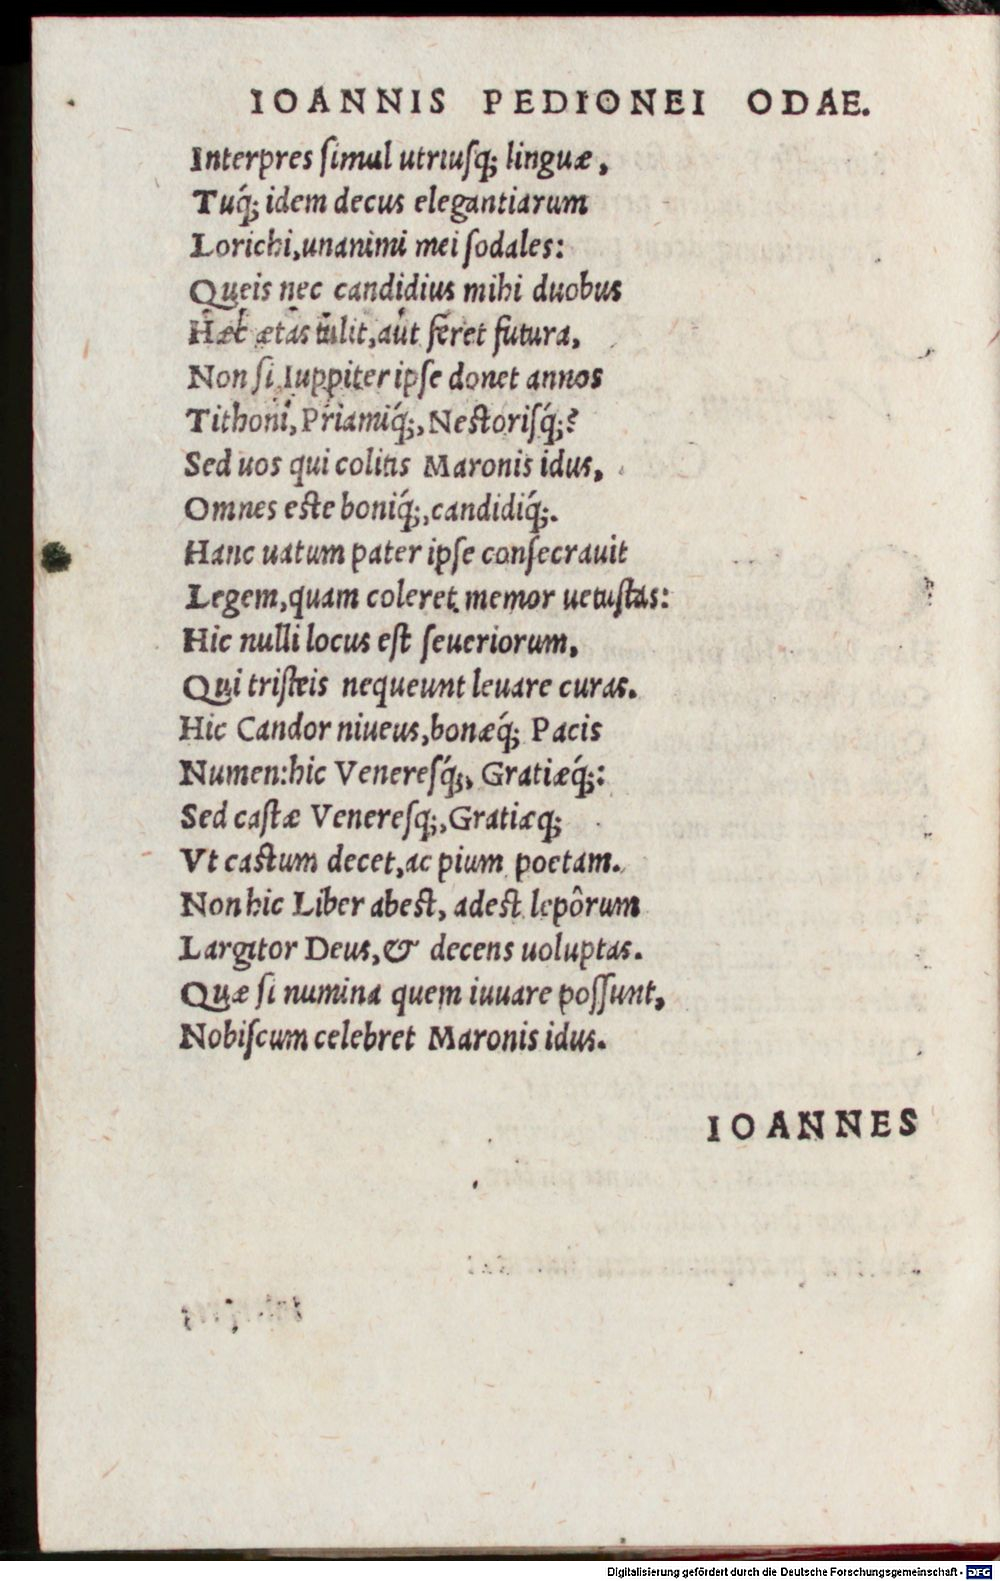 IOANNIS PEDIONEI ODAE.
Interpres ſimul utriuſq; linguæ,
Tuq́; idem decus elegantiarum
Lorichi, unanimi mei ſodales:
Queis nec candidius mihi duobus
Hæc ætas tulit, aut feret futura,
Non ſi Iuppiter ipſe donet annos
Tithoni, Priamiq́;, Neſtoriſq́;?
Sed uos qui colitis Maronis idus,
Omnes eſte boniq́;, candidiq́;.
Hanc uatum pater ipſe conſecrauit
Legem, quam coleret memor uetuſtas:
Hic nulli locus eſt ſeueriorum,
Qui triſteis nequeunt leuare curas.
Hic Candor niueus, bonæq́; Pacis
Numen: hic Venereſq́;, Gratiæq́;:
Sed caſtæ Venereſq;, Gratiæq;
Vt caſtum decet, ac pium poetam.
Non hic Liber abeſt, adeſt lepôrum
Largitor Deus, & decens uoluptas.
Quæ ſi numina quem iuuare poſſunt,
Nobiſcum celebret Maronis idus.
IOANNES
Digitalisierung gefördert durch die Deutsche Forschungsgemeinschaft - DFG